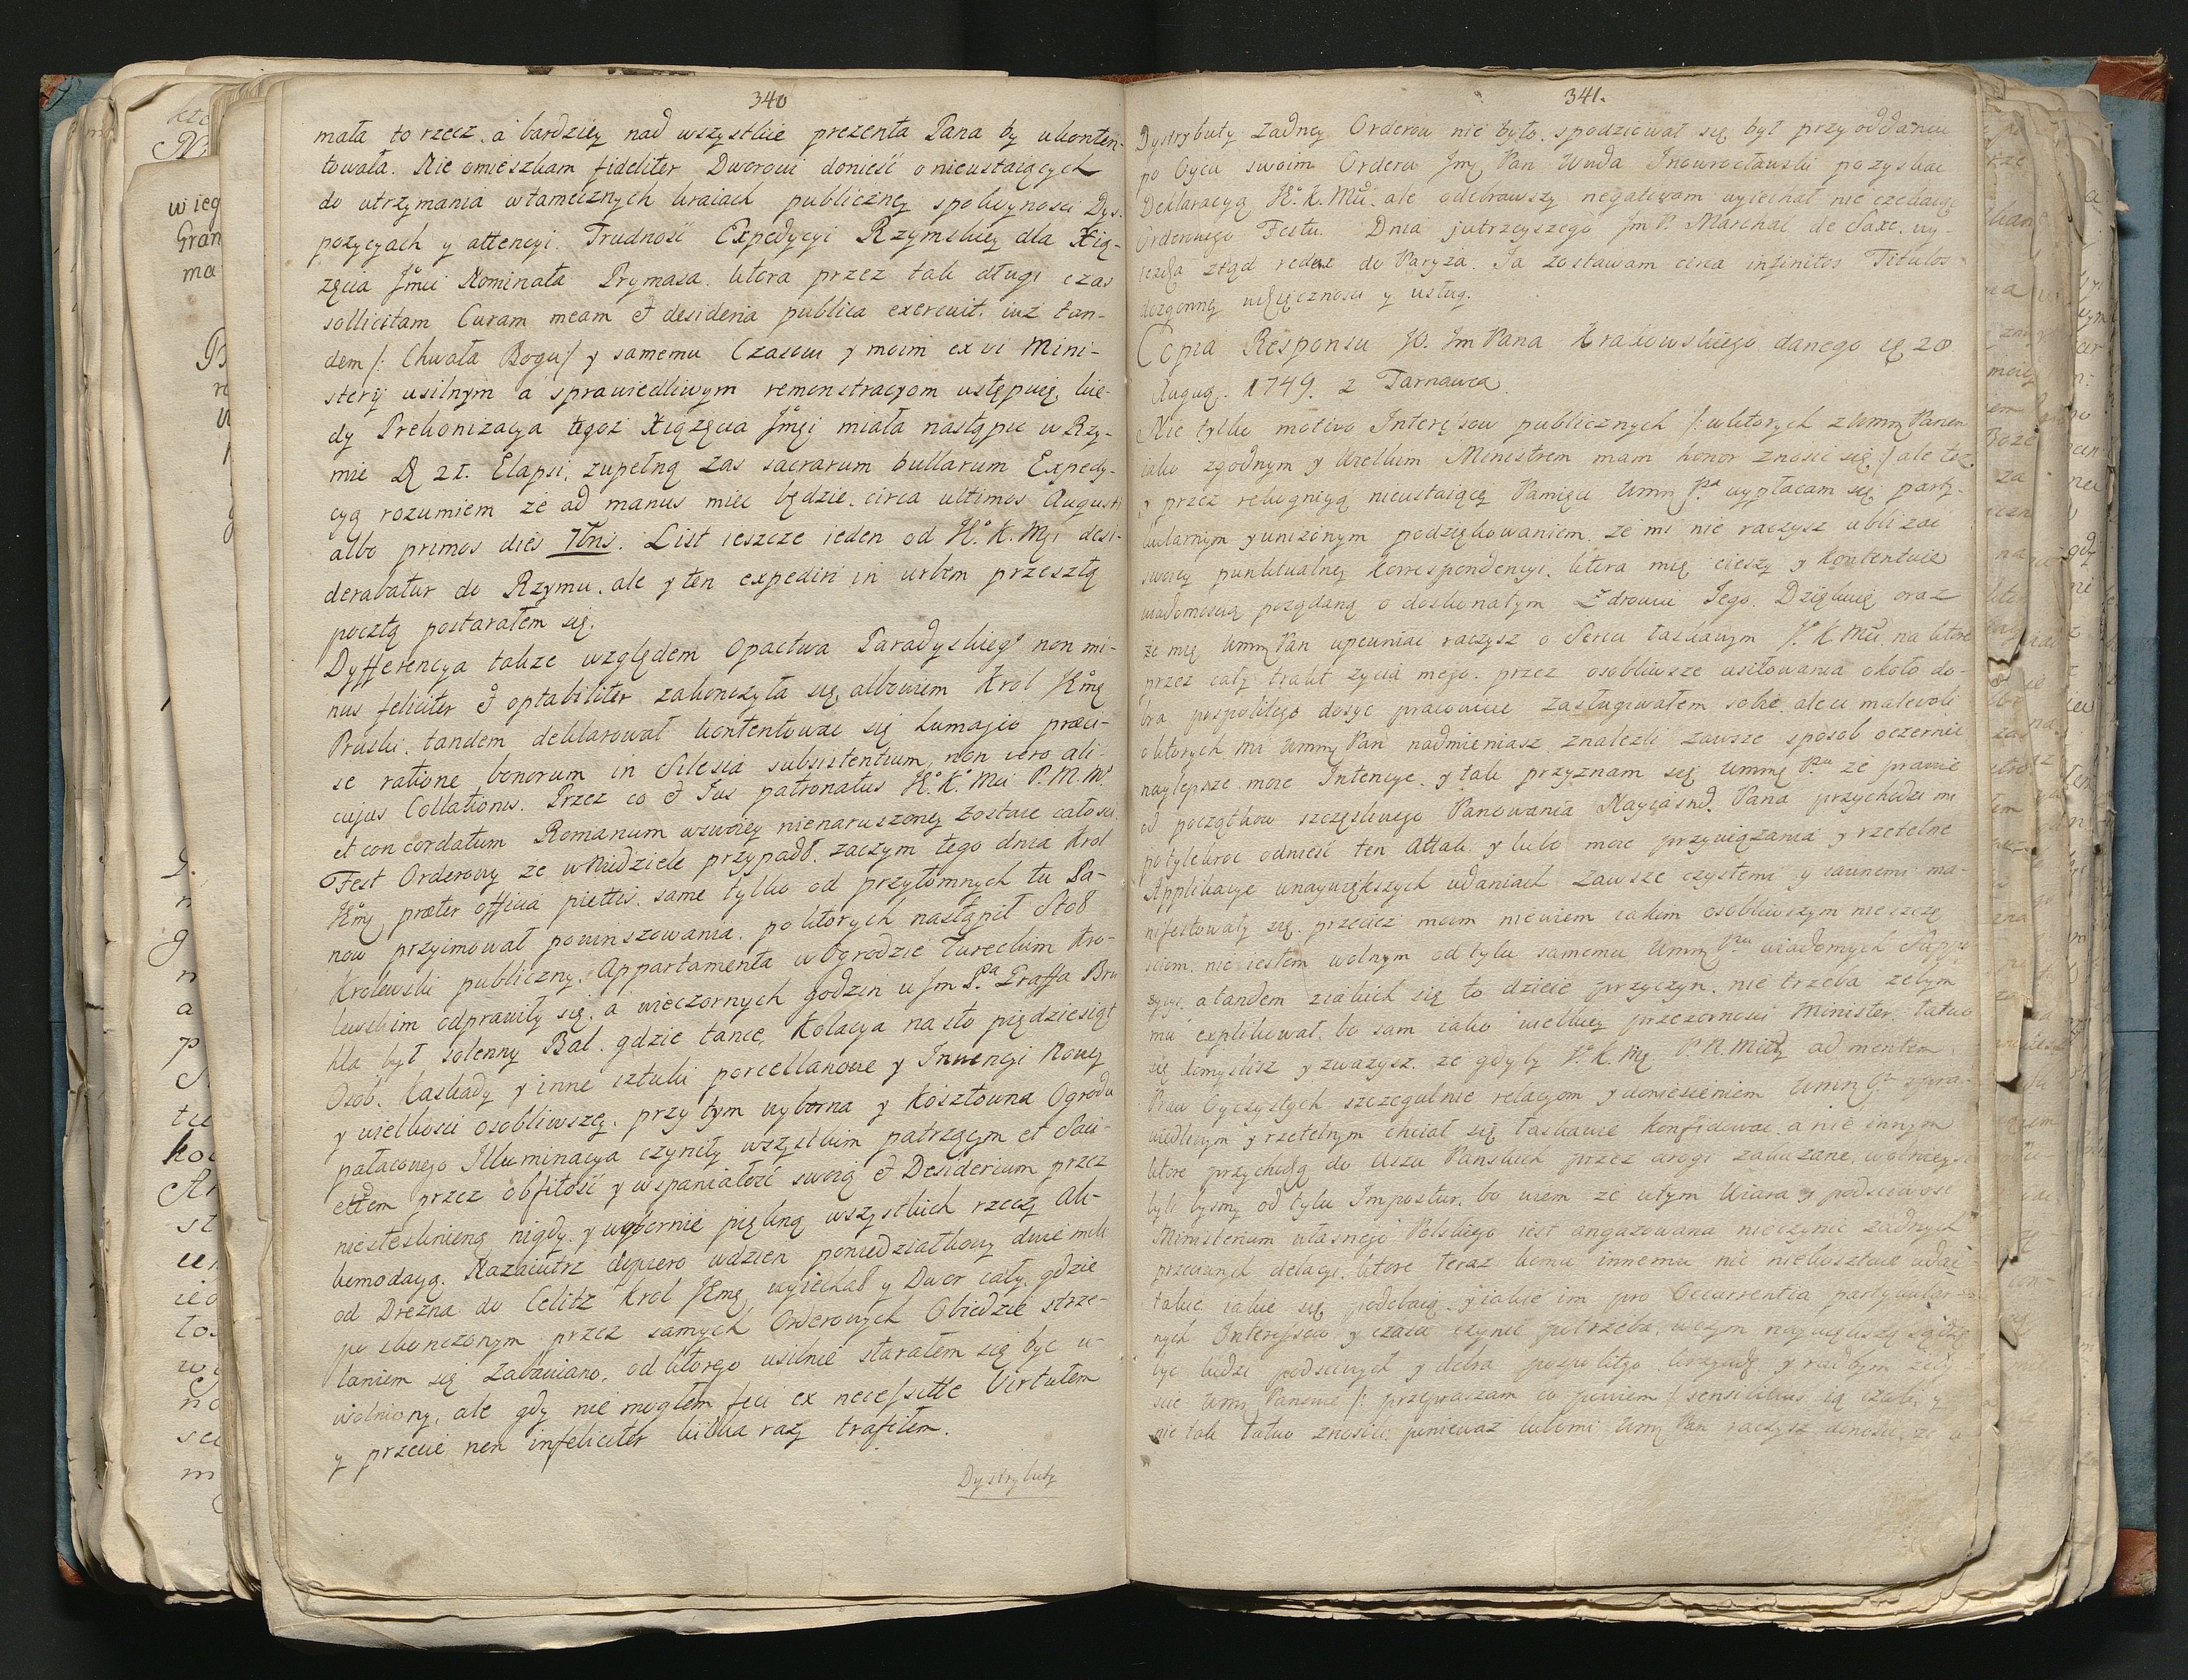 340
mała to rzecz, a bardziey nad wszystkie prezenta Pana by ukonten-
towała. Nie omieszkam fideliter Dworowi donieść o nieustaiących
do utrzymania w tamecznych kraiach publiczney spokoyności Dys-
pozycyach y attencyi. Trudność Expedycyi Rzymskiey dla Xią-
zęcia Jmci Nominata Prymasa, ktora przez tak długi czas
sollicitam Curam meam et desideria publica exercuit, iuz tan-
dem /: Chwała Bogu / y samemu Czasowi y moim ex vi Mini-
sterij usilnym a sprawiedliwym remonstracyom ustępuię, kie-
dy Prekonizacya tegoż Xiązęcia Jmci miała nastąpić w Rzy-
mie D. 21. Elapsi, zupełną zas sacrarum bullarum Expedy-
cyą rozumiem że ad manus mieć będzie, circa ultimos Augusti
albo primos dies 7bris. List ieszcze ieden od J. K. Mci desi-
derabatur do Rzymu, ale y ten expediri in urbem przeszłą
pocztą postarałem się.
Dyfferencya takze względem Opactwa Paradyskiego non mi-
nus feliciter et optabiliter zakonczyła się, albowiem Krol Jmc
Pruski, tandem deklarował kontentować się homagio præci-
se ratione bonorum in Silesia subsistentium, non vero ali-
cujus Collationis. Przez co et Jus patronatus J. K. Mci P. M. M.
et concordatum Romanum w swoiey nienaruszoney zostaie całosci.
Fest Orderowy że w Niedziele przypadł, zaczym tego dnia Krol
Jmc præter officia pietatis, same tylko od przytomnych tu Pa-
now przyimował powinszowania, po ktorych nastąpił Stoł
Krolewski publiczny. Appartamenta w Ogrodzie Tureckim Kro-
lewskim odprawiły się, a wieczornych godzin u Jm Pa Graffa Brü
hla był solenny Bal, gdzie tance, Kolacya na sto pięćdziesiąt
Osob, kaskady y inne sztuki porcellanowe y Inwencyi Nowey
y wielkości osobliwszey, przy tym wyborna y kosztowna Ogrodu
pałacowego Illuminacya czyniły wszystkim patrzącym et Saci-
etatem przez obfitość y wspaniałość swoią et Desiderium przez
niesteskninioną nigdy y wybornie piękną wszystkich rzeczy Ak-
komodacyą. Nazaiutrz dopiero w dzien poniedziałkowy dwie mili
od Drezna do Celitz Krol Jmc wyiechał y Dwor cały, gdzie
po skonczonym przez samych Orderowych Obiedzie strze-
laniem się zabawiano, od ktorego usilnie starałem się być u-
wolniony, ale gdy nie mogłem feci ex necessitate Virtutem
y przecie non infeliciter kilka razy trafiłem.
Dystrybuty
341.
Dystrybuty żadney Orderow nie było, spodziewał się był przy oddaniu
po Oycu swoim Orderu Jmc Pan Wwda Inowrocławski pozyskac
Deklaracyą J. K. Mci, ale odebrawszy negativam wyiechał nie czekaiąc
Orderowego Festu. Dnia jutrzeyszego Jm P. Marechal de Saxe wy-
iezdza ztąd redux do Paryża. Ja zostawam circa infinitos Titulos
dozgonney wdzięczności y usług.
Copia Responsu JO. Jm Pana Krakowskiego danego D. 20
August. 1749. z Tarnawca
Nie tylko motivo Interessow publicznych /: w ktorych z WmM Panem
iako zgodnym y Wielkim Ministrem mam honor znosic się :/ ale tez
y przez rekognicyą nieustaiącey Pamięci WmM Pa wypłacam się party-
kularnym y unizonym podziękowaniem, że mi nie raczysz ubliżać
swoiey punktualney korrespondencyi, ktora mię cieszy y kontentuie
wiadomością pożądaną o doskonałym Zdrowiu Jego. Dziękuię oraz
że mię WmM Pan upewniac raczysz o Sercu łaskawym J. K. Mci na ktore
przez cały trakt życia mego, przez osobliwsze usiłowania około do-
bra pospolitego dosyc pracowicie zasługiwałem sobie, ale ci malevoli
o ktorych mi WmM Pan nadmieniasz, znalezli zawsze sposob oczernic
naylepsze moie Intencye, y tak przyznam się WmM Pu że prawie
od początkow szczęśliwego Panowania Nayiasn. Pana przychodzi mi
po tylekroc odnieść ten Attak y lubo moie przywiązania y rzetelne
Applikacye w naywiększych udaniach zawsze czystemi y iawnemi ma-
nifestowały się, przecież moim niewiem iakim osobliwszym nieszczę-
sciem, nie iestem wolnym od tylu samemu WmM Pu wiadomych Suppo-
zycyi, a tandem z iakich się to dzieie przyczyn, nie trzeba żebym
mu explikował, bo sam iako wielkiey przezorności Minister, łatwo
się domyslisz y zwazysz, że gdyby J. K. Mc P. N. Miły ad mentem
Praw Oyczystych szczegulnie relacyom y doniesieniem WmM Pa spra-
wiedliwym y rzetelnym chciał się łaskawie konfidowac, a nie innym
ktore przychodzą do Uszu Panskich przez drogi zakazane, wolnieysi
byli bysmy od tylu Impostur, bo wiem że w tym Wiara y podsciwosc
Ministerium własnego Polskiego iest angażowana nieczynic żadnych
przeciwnych delacyi, ktore teraz komu innemu nic niekosztuie udai-
takie iakie się podobaią y iakie im pro Occurrentia partykular-
nych Interessow y czasu czynic potrzeba, w czym naywiększą
byc ludzi podsciwych y dobra pospolitego krzywdę y radbym żeby
scie WmM Panowie /: przepraszam co powiem :/ sensibilius ią czuli y
nie tak łatwo znosili, poniewaz kiedy mi WmM Pan raczysz donosic, że w